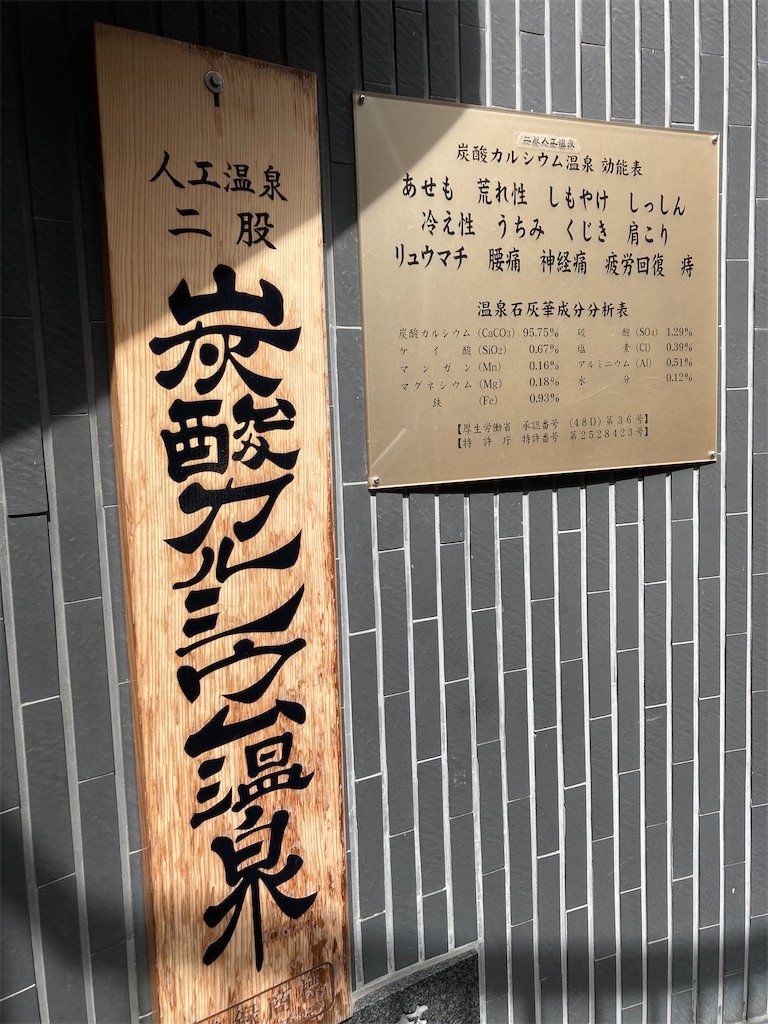 人工温泉
二股
炭酸カルシウム温泉
二股人工温泉
炭酸カルシウム温泉 効能表
あせも 荒れ性 しもやけ しっしん
冷え性 うちみ くじき 肩こり
リュウマチ 腰痛 神経痛 疲労回復 痔
温泉石灰華成分分析表
炭酸カルシウム (CaCO3) 95.75% 硫酸 (SO4) 1.29%
ケイ酸 (SiO2) 0.67% 塩素 (Cl) 0.39%
マンガン (Mn) 0.16% アルミニウム (Al) 0.51%
マグネシウム (Mg) 0.18% 水分 0.12%
鉄 (Fe) 0.93%
【厚生労働省 承認番号 (48D)第36号】
【特許庁 特許番号 第2528423号】